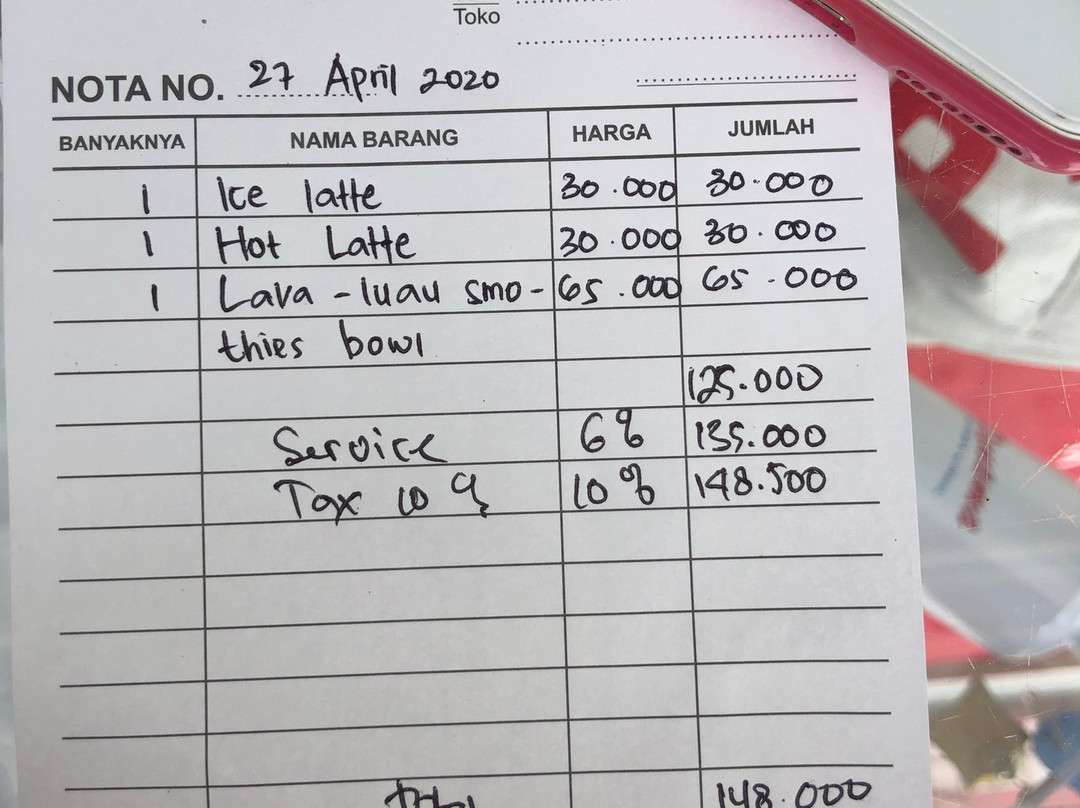 Toko
NOTA NO. 27 April 2020
BANYAKNYA NAMA BARANG HARGA JUMLAH
1 Ice latte 30.000 30.000
1 Hot Latte 30.000 30.000
1 Lava - luau smo- 65.000 65.000
thies bowl
125.000
Service 6% 135.000
Tax 10 % 10% 148.500
148.000